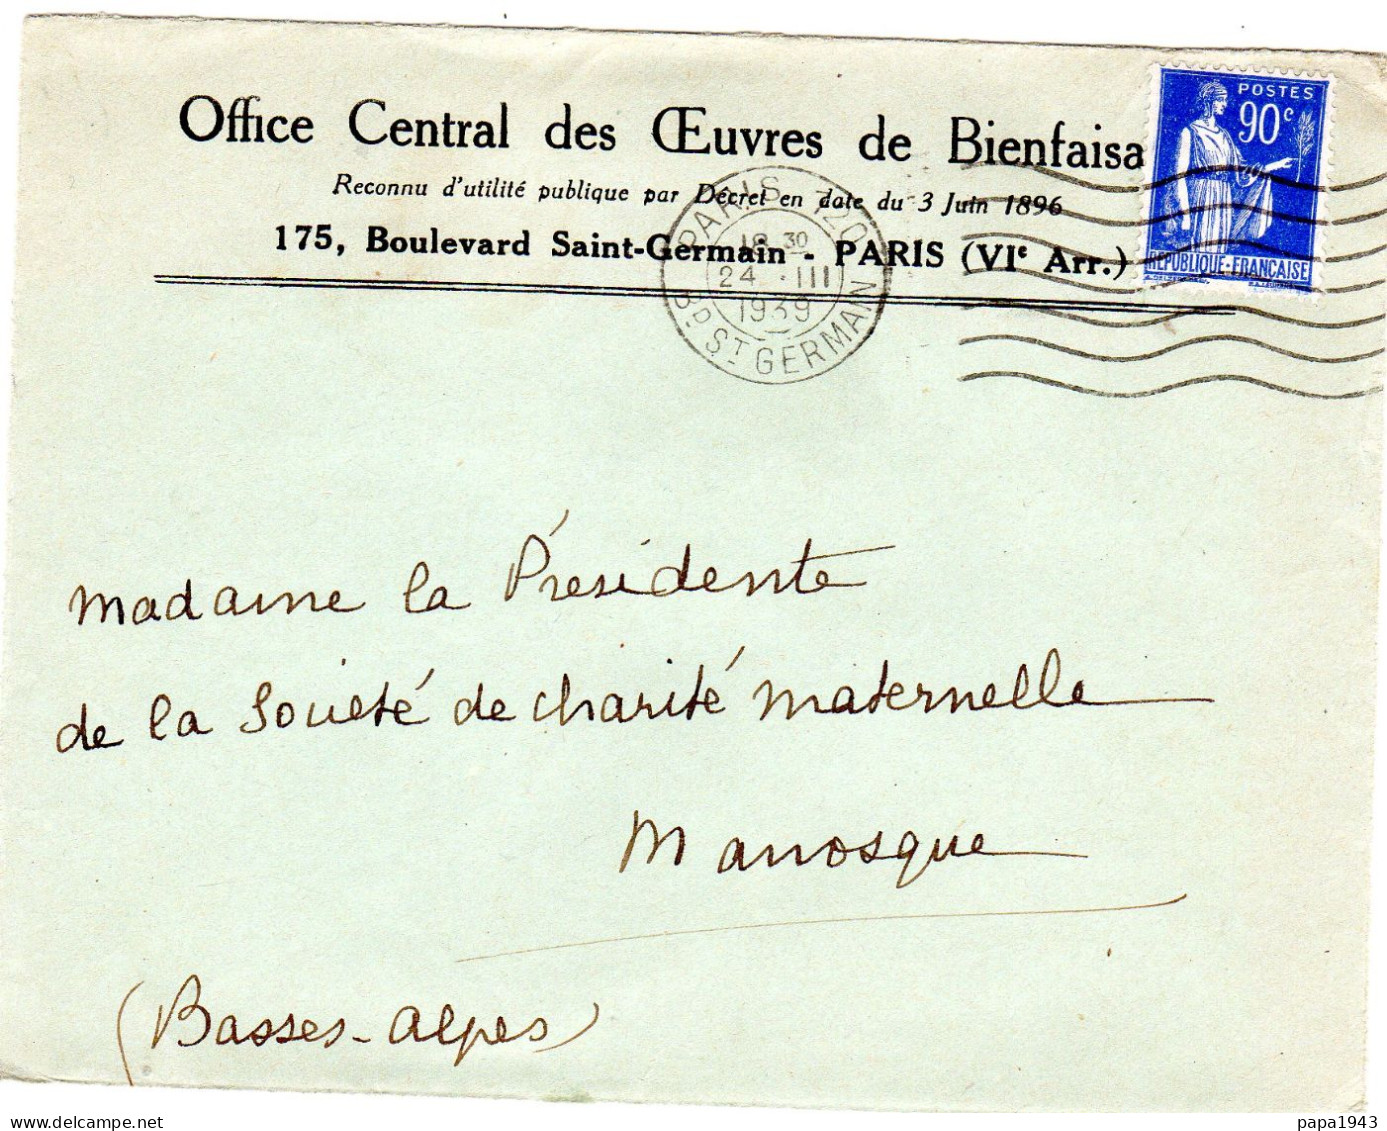 Office Central des Œuvres de Bienfaisa
Reconnu d'utilité publique par Décret en date du 3 Juin 1896
175, Boulevard Saint-Germain - PARIS (VIe Arr.)
POSTES
90c
REPUBLIQUE-FRANÇAISE
PARIS 120
18 30
24 · III
1939
BD ST GERMAIN
Madame la Présidente
de la Société de charité maternelle
Manosque
(Basses-Alpes)
www.delcampe.net
papa1943